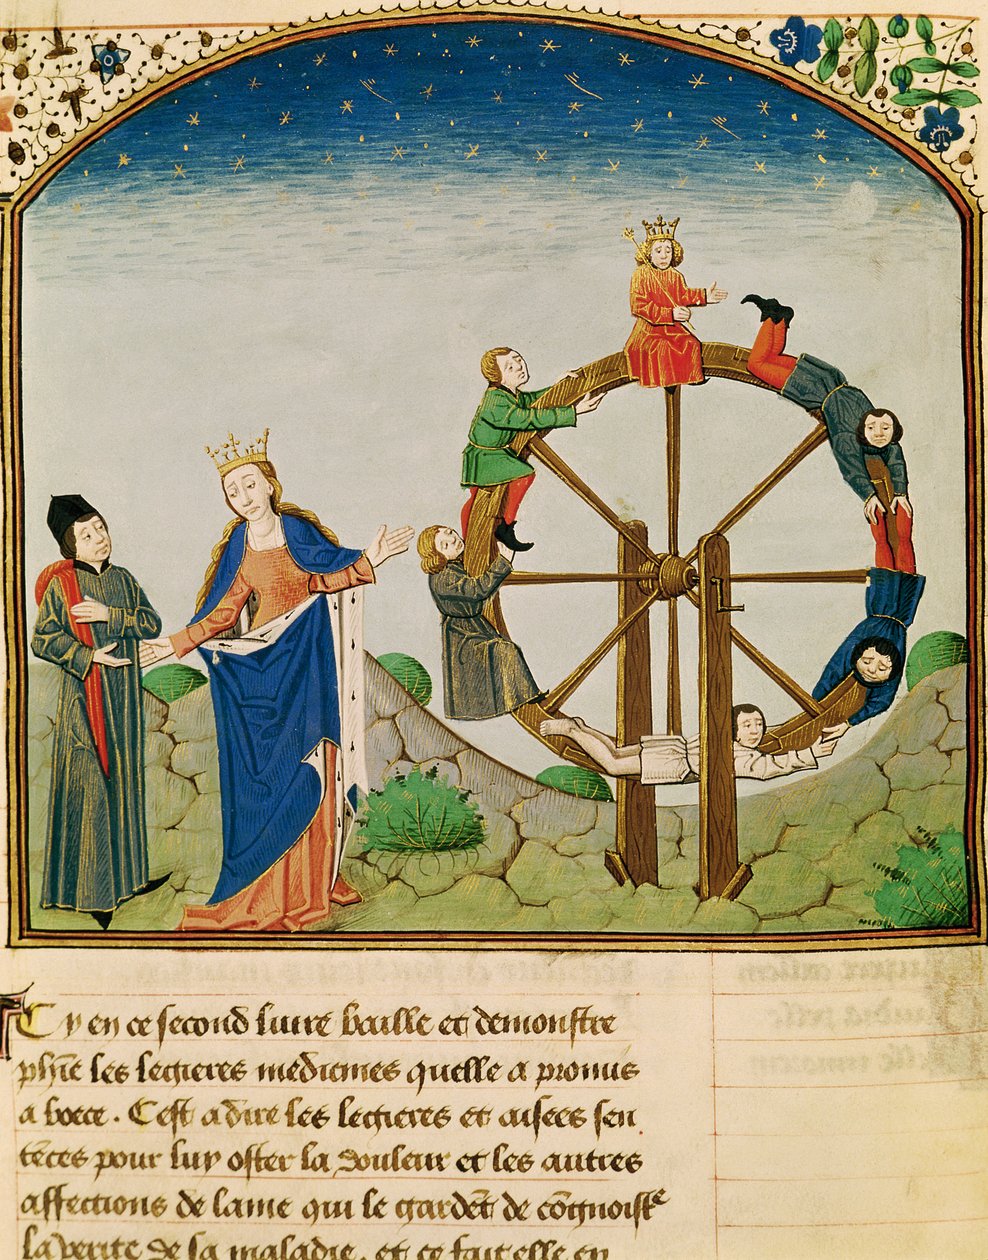 Cy en ce second livre baille et demonstre
phie les legieres medicines quelle a promis
a boece. Cest a dire les legieres et aisees sen
tēces pour luy oster la douleur et les autres
affections de lame qui le gardēt de cōgnoistre
la verite de sa maladie. et ce fait elle en